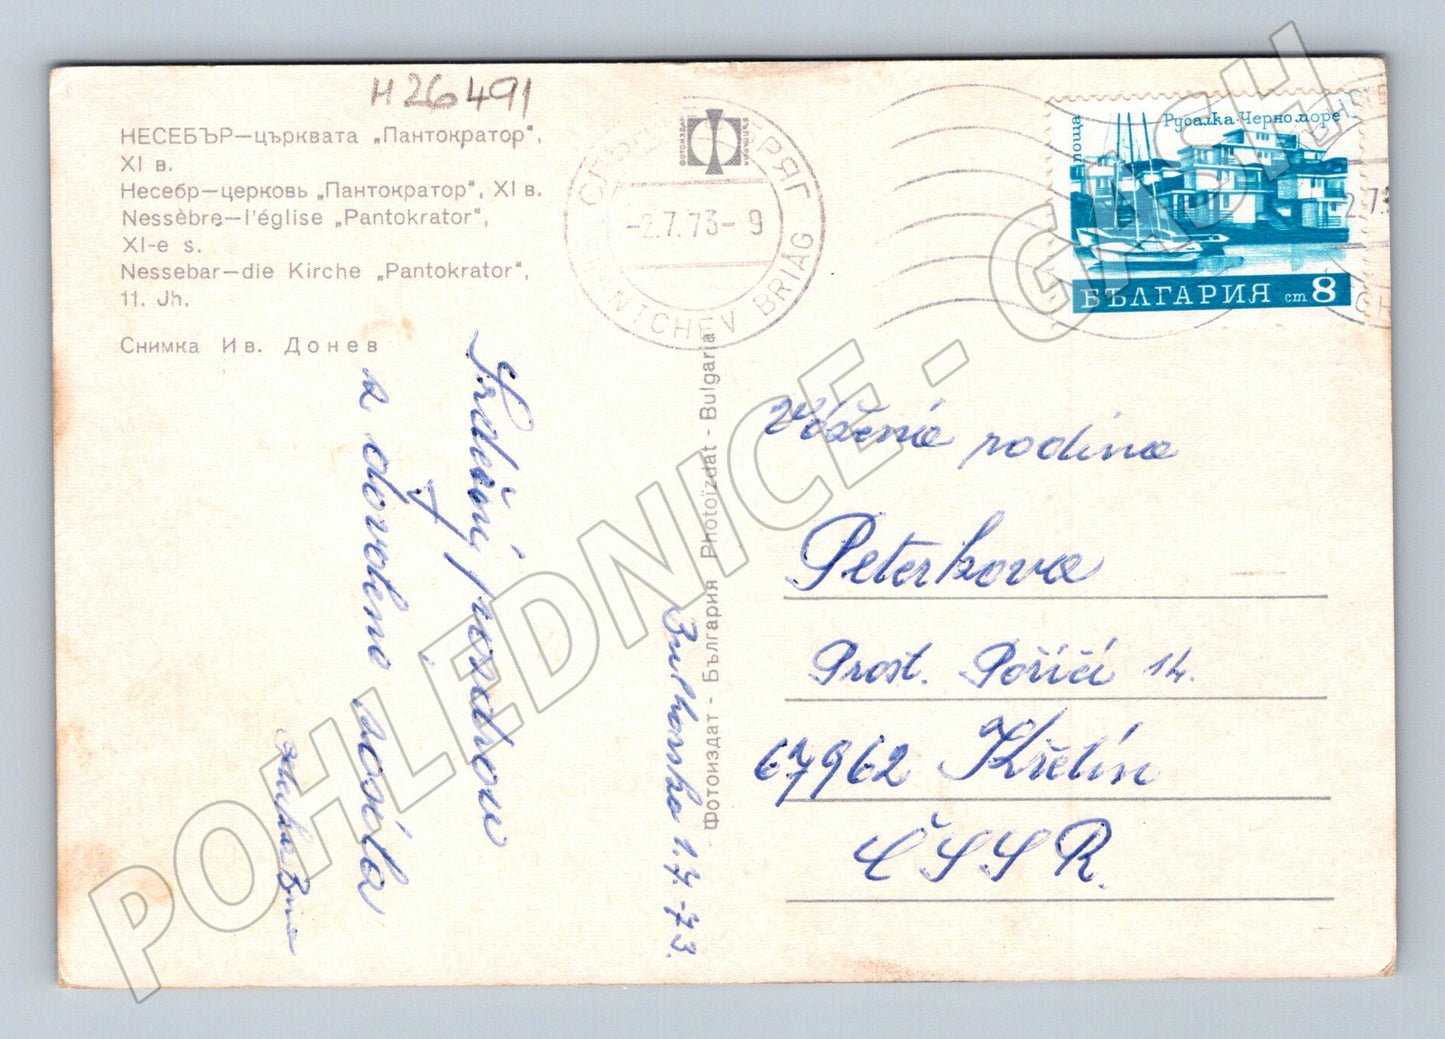 H26491
НЕСЕБЪР—църквата „Пантократор“,
XI в.
Несебр—церковь „Пантократор“, XI в.
Nessèbre—l'église „Pantokrator“,
XI-e s.
Nessebar—die Kirche „Pantokrator“,
11. Jh.
Снимка Ив. Донев
БРЯГ
-2.7.73-9
NTCHEV BRIAG
Русалка-Черно море
поща
БЪЛГАРИЯ ст 8
Фотоиздат - България Photoïzdat - Bulgaria
Srdečný pozdrav
z dovolené zasílá
Bulharsko 1.7.-73.
Vážená rodina
Peterkova
Prost. Poříčí 14.
67962 Křetín
ČSSR.
POHLEDNICE - GASH